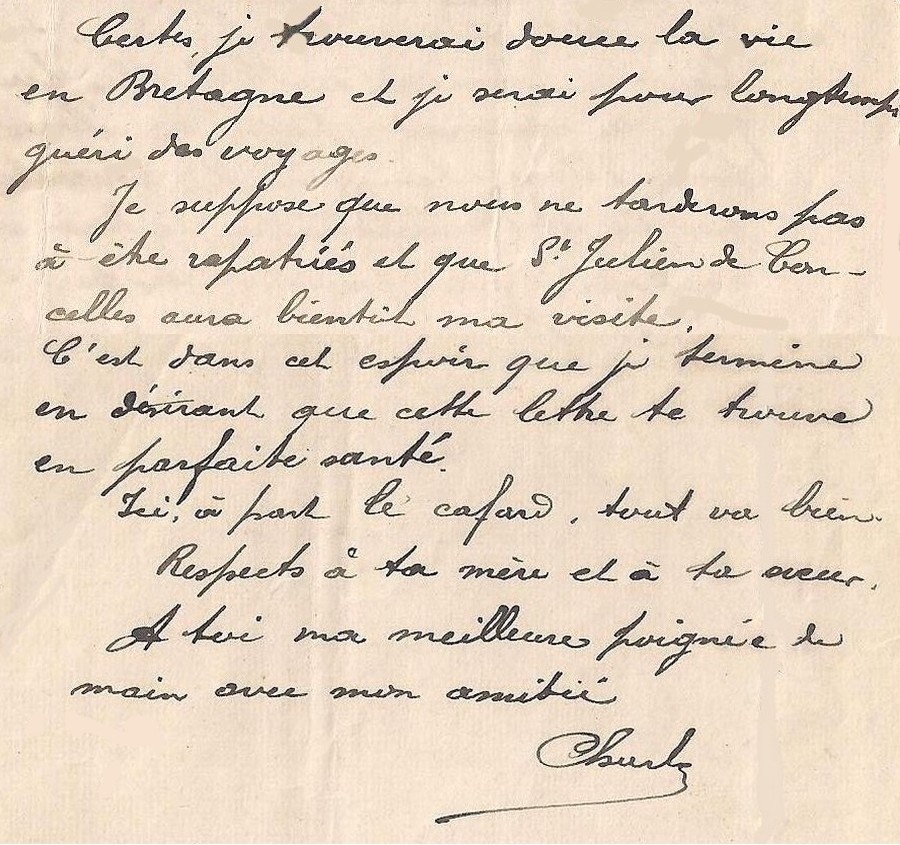 Certes, je trouverai douce la vie
en Bretagne et je serai pour longtemps
guéri des voyages.
Je suppose que nous ne tarderons pas
à être rapatriés et que St Julien de Con-
celles aura bientôt ma visite.
C'est dans cet espoir que je termine
en désirant que cette lettre te trouve
en parfaite santé.
Ici, à part le cafard, tout va bien.
Respects à ta mère et à ta sœur.
A toi ma meilleure poignée de
main avec mon amitié